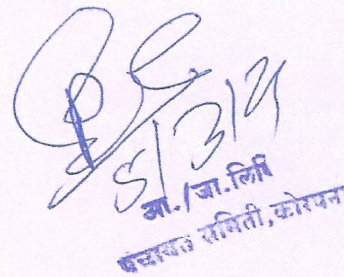 5/3/21
आ./जा.लिपि
पंचायत समिती,कोरपना